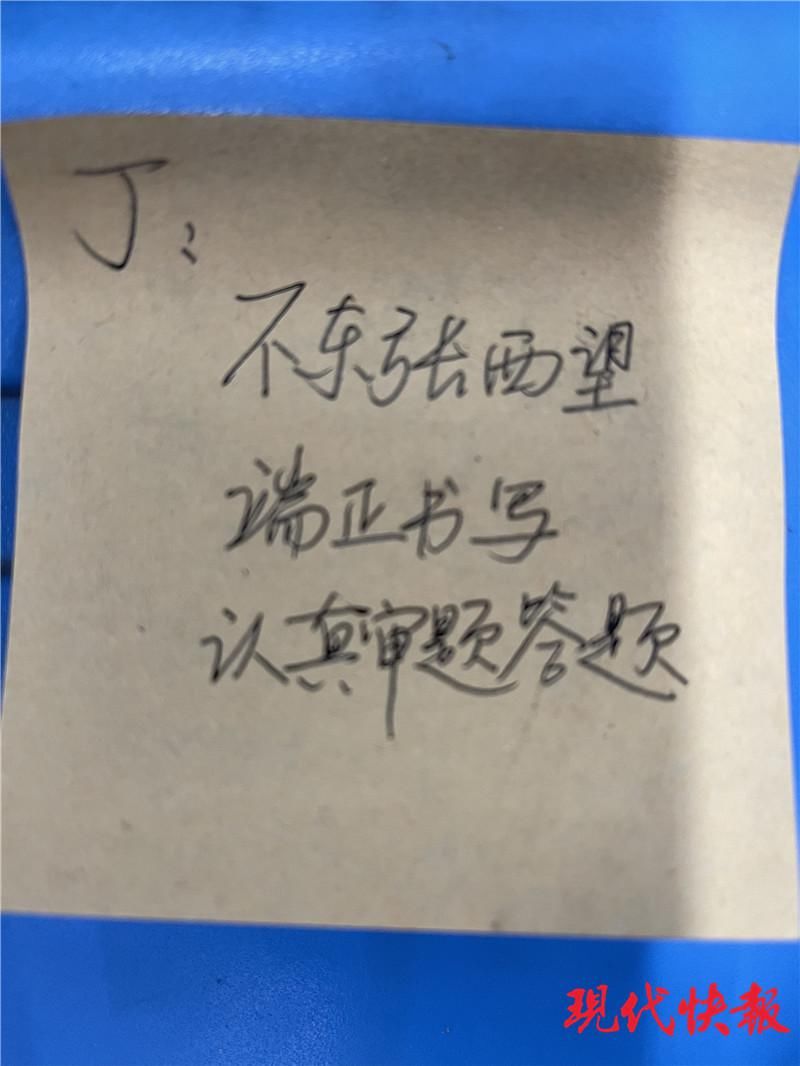 丁：
不东张西望
端正书写
认真审题答题
現代快報